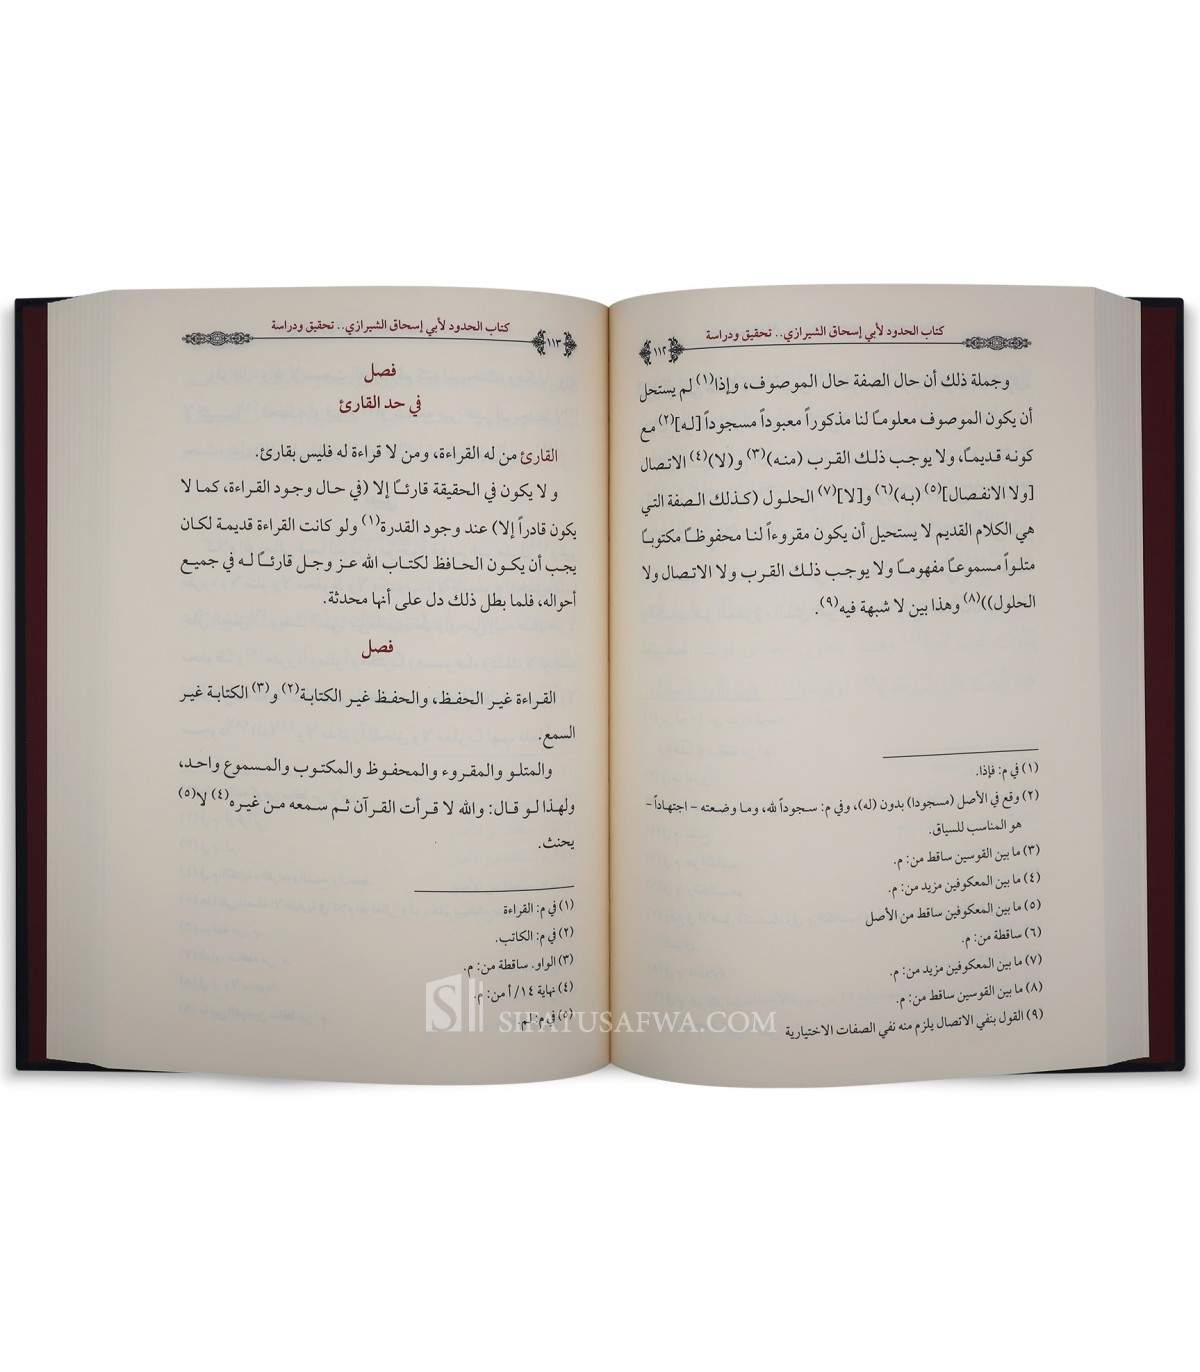 كتاب الحدود لأبي إسحاق الشيرازي.. تحقيق ودراسة
١١٢
وجملة ذلك أن حال الصفة حال الموصوف، وإذا(١) لم يستحل
أن يكون الموصوف معلومًا لنا مذكوراً معبوداً مسجوداً [له](٢) مع
كونه قديمًا، ولا يوجب ذلك القرب (منه)(٣) و(لا)(٤) الاتصال
[ولا الانفصال](٥) (به)(٦) و[لا](٧) الحلول (كذلك الصفة التي
هي الكلام القديم لا يستحيل أن يكون مقروءاً لنا محفوظًا مكتوبًا
متلواً مسموعًا مفهومًا ولا يوجب ذلك القرب ولا الاتصال ولا
الحلول))(٨) وهذا بين لا شبهة فيه(٩).
(١) في م: فإذا.
(٢) وقع في الأصل (مسجودا) بدون (له)، وفي م: سجوداً لله، وما وضعته – اجتهاداً –
هو المناسب للسياق.
(٣) ما بين القوسين ساقط من: م.
(٤) ما بين المعكوفين مزيد من: م.
(٥) ما بين المعكوفين ساقط من الأصل
(٦) ساقطة من: م.
(٧) ما بين المعكوفين مزيد من: م.
(٨) ما بين القوسين ساقط من: م.
(٩) القول بنفي الاتصال يلزم منه نفي الصفات الاختيارية
كتاب الحدود لأبي إسحاق الشيرازي.. تحقيق ودراسة
١١٣
فصل
في حد القارئ
القارئ من له القراءة، ومن لا قراءة له فليس بقارئ.
و لا يكون في الحقيقة قارئًا إلا (في حال وجود القراءة، كما لا
يكون قادراً إلا) عند وجود القدرة(١) ولو كانت القراءة قديمة لكان
يجب أن يكون الحافظ لكتاب الله عز وجل قارئًا له في جميع
أحواله، فلما بطل ذلك دل على أنها محدثة.
فصل
القراءة غير الحفظ، والحفظ غير الكتابة(٢) و(٣) الكتابة غير
السمع.
والمتلو والمقروء والمحفوظ والمكتوب والمسموع واحد،
ولهذا لو قال: والله لا قرأت القرآن ثم سمعه من غيره(٤) لا(٥)
يحنث.
(١) في م: القراءة
(٢) في م: الكاتب.
(٣) الواو. ساقطة من: م.
(٤) نهاية ١٤/ أ من: م.
(٥) في م: لم.
SIFATUSAFWA.COM